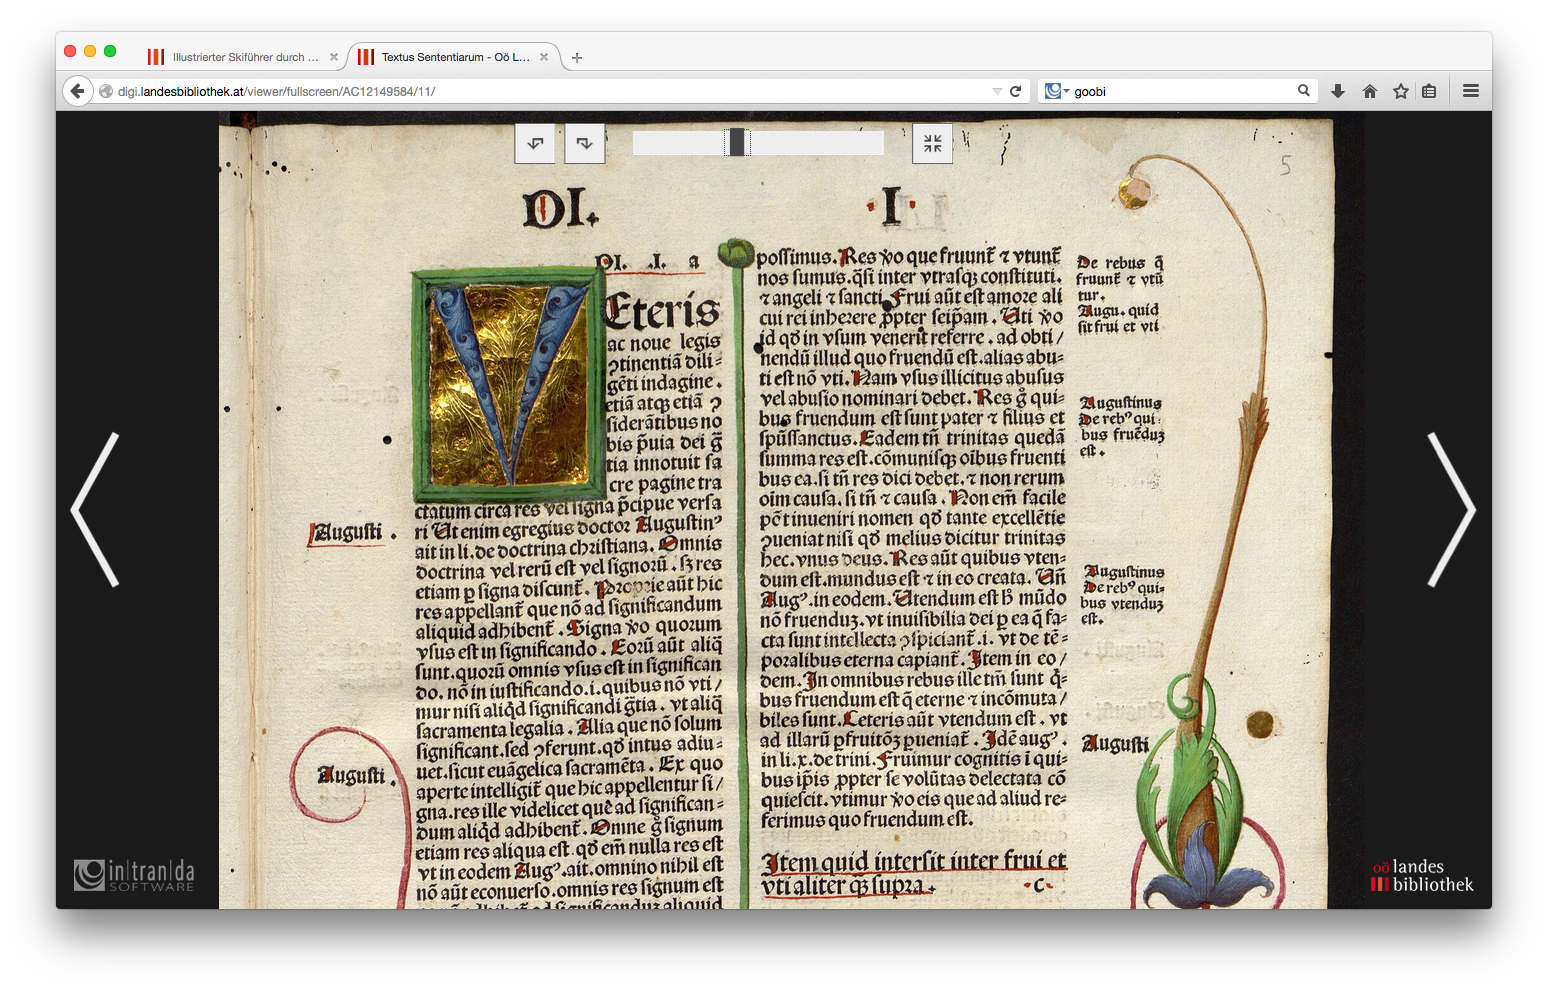 Illustrierter Skiführer durch ...
Textus Sententiarum - Oö L...
digi.landesbibliothek.at/viewer/fullscreen/AC12149584/11/
goobi
5
DI.
·I·
DI. .I. a
VEteris
ac noue legis
ꝯtinentiā dili⸗
gēti indagine .
etiā atqꝫ etiā ꝯ
siderātibus no
bis p̄uia dei ḡ
tia innotuit sa
cre pagine tra
ctatum circa res vel signa p̄cipue versa
ri Ut enim egregius doctor Augustinꝰ
ait in li.de doctrina christiana. Omnis
doctrina vel rerū est vel signorū . sꝫ res
etiam ꝑ signa discunt̄. Proprie aūt hic
res appellant̄ que nō ad significandum
aliquid adhibent̄ . Signa v̊o quorum
vsus est in significando . Eorū aūt aliq̄
sunt.quorū omnis vsus est in significan
do. nō in iustificando.i.quibus nō vti/
mur nisi aliq̇d significandi ḡtia . vt aliq̄
sacramenta legalia . Alia que nō solum
significant.sed ꝯferunt.qḋ intus adiu⸗
uet.sicut euāgelica sacramēta. Ex quo
aperte intelligit̄ que hic appellentur si/
gna.res ille videlicet que ad significan⸗
dum aliq̇d adhibent̄. Omne g̊ signum
etiam res aliqua est.qḋ em̄ nulla res est
vt in eodem Augꝰ.ait.omnino nihil est
nō aūt econuerso.omnis res signum est
possimus.Res v̊o que fruunt̄ ⁊ vtunt̄
nos sumus.q̄si inter vtrasqꝫ constituti.
⁊ angeli ⁊ sancti.Frui aūt est amore ali
cui rei inherere ꝓpter seip̄am . Uti v̊o
id qḋ in vsum venerit referre . ad obti/
nendū illud quo fruendū est.alias abu⸗
ti est nō vti. Nam vsus illicitus abusus
vel abusio nominari debet. Res g̊ qui⸗
bus fruendum est sunt pater ⁊ filius et
spūssanctus. Eadem tn̄ trinitas quedā
summa res est.cōmunisqꝫ oībus fruenti
bus ea.si tn̄ res dici debet.⁊ non rerum
oīm causa. si tn̄ ⁊ causa . Non em̄ facile
pōt inueniri nomen qḋ tante excellētie
ꝯueniat nisi qḋ melius dicitur trinitas
hec.vnus deus. Res aūt quibus vten⸗
dum est.mundus est ⁊ in eo creata. Un̄
Augꝰ.in eodem. Utendum est h̊ mūdo
nō fruenduꝫ.vt inuisibilia dei ꝑ ea q̄ fa⸗
cta sunt intellecta ꝯspiciant̄.i. vt de tē⸗
poralibus eterna capiant̄. Item in eo/
dem. In omnibus rebus ille tm̄ sunt q̇⸗
bus fruendum est q̄ eterne ⁊ incōmuta/
biles sunt. Ceteris aūt vtendum est . vt
ad illarū ꝑfruitōꝫ ꝑueniat̄ . Idē augꝰ .
in li.x.de trini. Fruimur cognitis i qui⸗
bus ip̄is ꝓpter se volūtas delectata cō
quiescit. vtimur v̊o eis que ad aliud re⸗
ferimus quo fruendum est.
Item quid intersit inter frui et
vti aliter qꝫ supra.
·C·
Augusti .
Augusti .
De rebus q̄
fruunt̄ ⁊ vtū
tur.
Augu. quid
sit frui et vti
Augustinus
De rebꝰ qui⸗
bus fruēduꝫ
est .
Augustinus
De rebꝰ qui⸗
bus vtenduꝫ
est.
Augusti
in|tran|da
SOFTWARE
oö landes
bibliothek